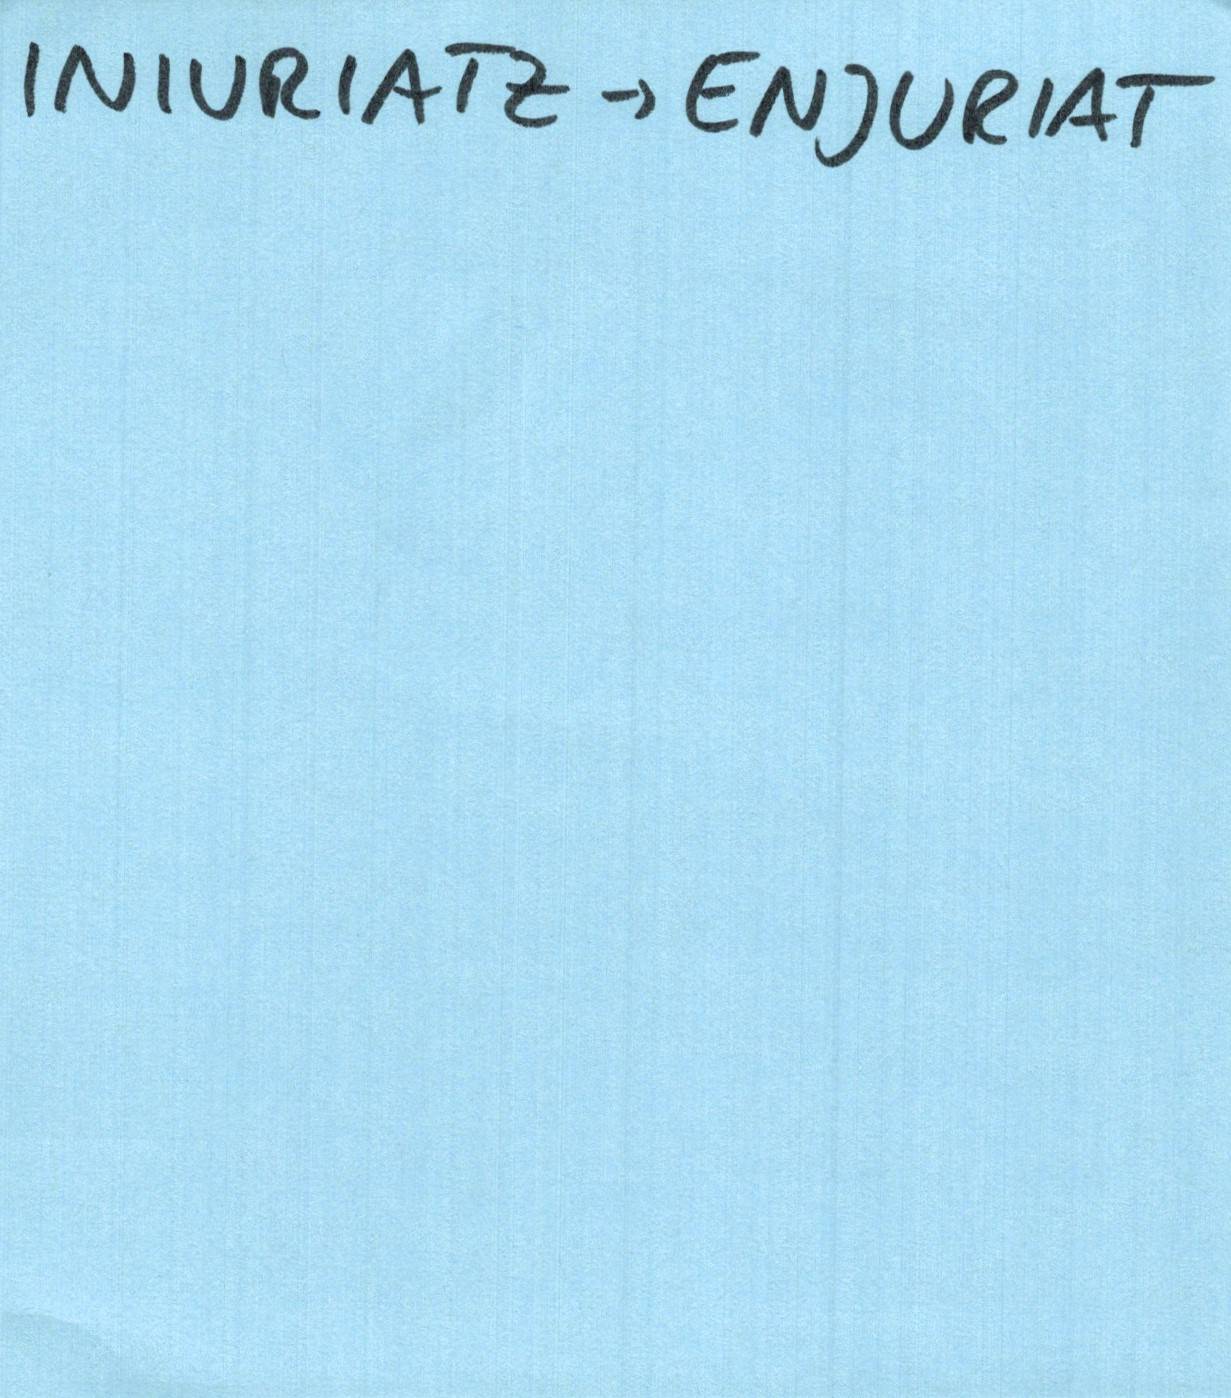 INIURIATZ → ENJURIAT